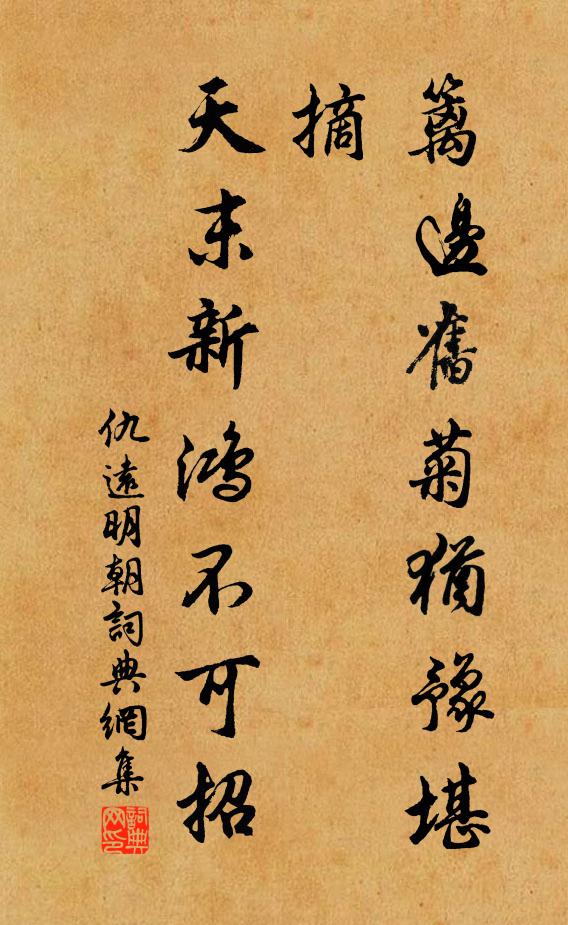 籬邊舊菊猶豫堪
摘
天末新鴻不可招
仇遠明朝詞典網集
詞典网印